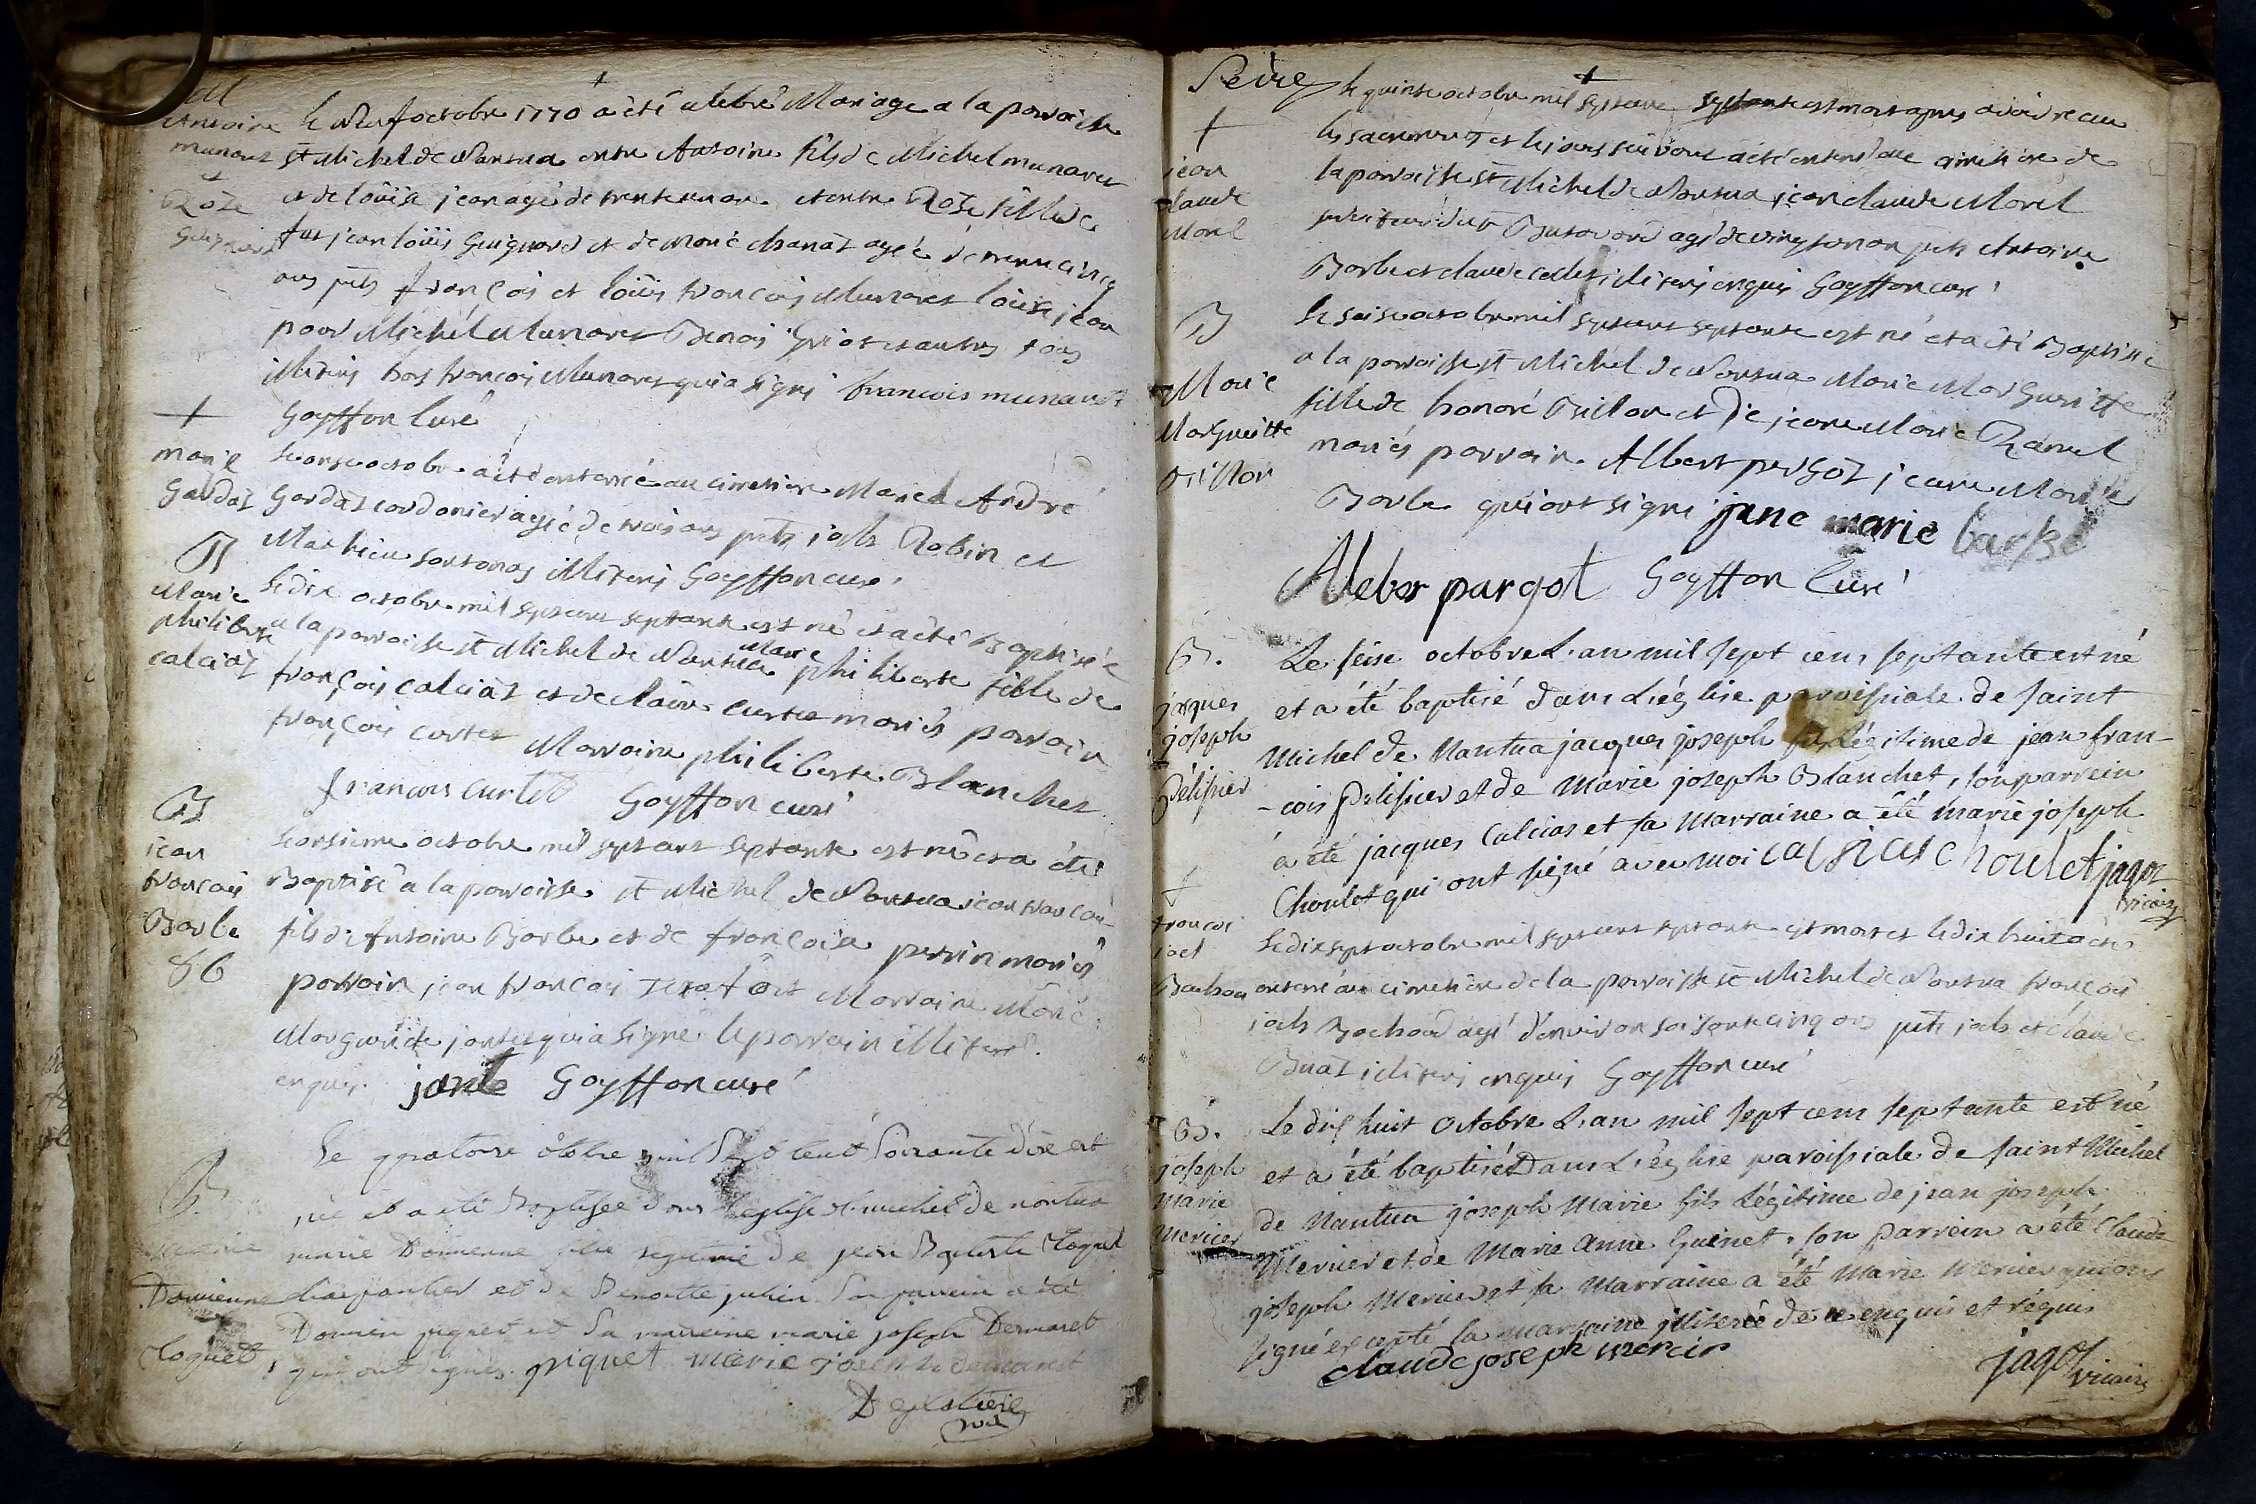 M
Antoine
munaret
+
Roze
Guignard
+
le neuf octobre 1770 a été celebré Mariage a la parroisse
St Michel de Nantua entre Antoine fils de Michel munaret
et de loüise jean agé de trente un an et entre Roze fille de
fut jean loüis Guignard et de Marie chanaz agée de trente cinq
ans pnts françois et loüis françois Munaret loüis jean
pour Michel Munaret Benoi et autres tous
illiterés hors françois Munaret qui a signé francois munaret
Goyffon Curé
+
marie
Gaudaz
le onze octobre a été enterrée au cimetiere Marie André
Gaudaz cordonier agée de trois ans pnts jacls Robin et
Mathieu sontonas illiterés Goyffon curé
B
Marie
philiberte
calciaz
le dix octobre mil sept cent septante est né et a été Baptisée
a la parroisse St Michel de Nantua Marie philiberte fille de
françois calciaz et de claire curtet mariés parrain
françois curtet Marraine philiberte Blanchet
francois curtet Goyffon curé
B
jean
françois
Barbe
86
le onzieme octobre mil sept cent septante est né et a été
Baptisé a la parroisse St Michel de Nantua jean françois
fils de Antoine Barbe et de françoise perrin mariés
parrain jean françois et Marraine Marie
Margueritte jantet qui a signé le parrain illiteré
enquis jante Goyffon curé
B
marie
Domienne
Cloquet
Le quatorze octobre mil Sept Cent Soixante dix est
née et a été Baptisée dans l'eglise st michel de nantua
marie Domienne fille legitime de jean Baptiste Cloquet
charpantier et de Benoitte julien Son parrein a été
Domien piquet et Sa marreine marie joseph Demaret
qui ont signés. piquet marie joseph demaret
+
jean
claude
Morel
+
le quinze octobre mil sept cent septante est mort apres avoir recu
les sacrements et le jour suivant a été enterré au cimetiere de
la parroisse St Michel de Nantua jean claude Morel
agé de vingt un an pnts Antoine
Barbe et claude collet illiterés enquis Goyffon curé
B
Marie
Margueritte
Billon
le seize octobre mil sept cent septante est né et a été Baptisée
a la parroisse St Michel de Nantua Marie Margueritte
fille de honoré Billon et de jeanne Marie Ravet
mariés parrain Albert pargoz jeanne Marie
Barbe qui ont signé jane marie barbe
Aleber pargot Goyffon Curé
B.
jacques
joseph
Pélissier
Le seise octobre L'an mil sept cens septante est né
et a été baptisé dans L'église parroissiale de saint
Michel de Nantua jacques joseph fils légitime de jean fran-
-cois Pélissier et de Marie joseph Blanchet, son parrein
a été jacques Calcias et sa marraine a été marie joseph
Choulet qui ont signé avec moi calcias choulet jagot
vicaire
+
françois
jacl
Bachou
le dix sept octobre mil sept cent septante est mort et le dix huit a été
enterré au cimetiere de la parroisse St Michel de Nantua françois
jacls Bachoud agé d'environ soisante cinq ans pnts jacls et claude
Buaz illiterés enquis Goyffon curé
B.
joseph
marie
Mercier
Le dix huit octobre L'an mil sept cens septante est né
et a été baptisé Dans L'église paroissiale de saint Michel
de Nantua joseph Marie fils Légitime de jean joseph
Mercier et de Marie Anne Guinet, son parrein a été Claude
joseph Mercier et sa marraine a été Marie Mercier qui ont
signé excepté la marraine illiterée de ce enquis et réquis
claude joseph mercier jagot vicaire